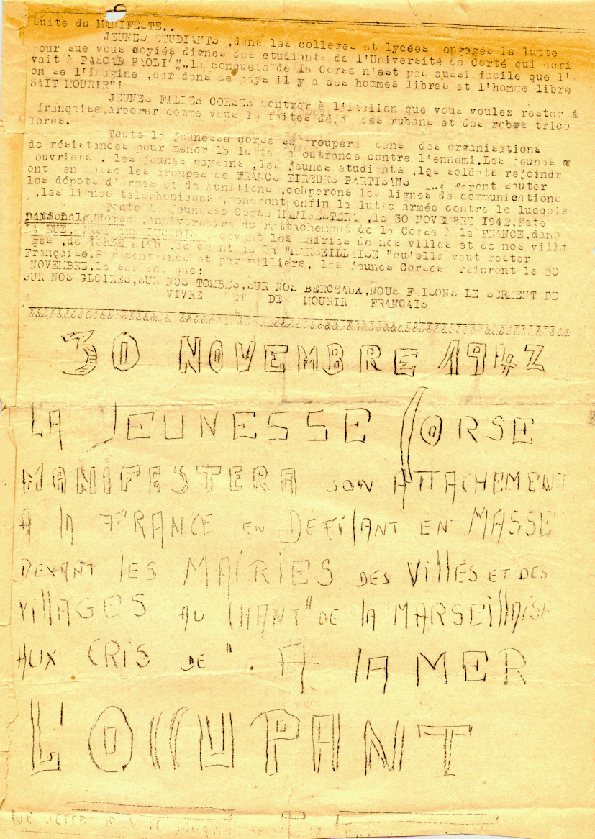 Suite du MANIFESTE..
JEUNES ETUDIANTS ,dans les collèges et lycées engagez la lutte
pour que vous soyiez dignes des étudiants de l'Université de Corté qui
vait à PASCAL PAOLI "..la conquète de la Corse n'est pas aussi facile que l'
on se l'imagine ,car dans ce pays il y a des hommes libres et l'homme libre
SAIT MOURIR"!
JEUNES FILLES CORSES montrer à l'italien que vous voulez rester
françaises,arborer comme vous le faites déjà des rubans et des robes trico
lores.
Toute la jeunesse corse se groupera dans des organisations
de résistances pour mener la lutte à outrance contre l'ennemi.Les jeunes
ouvriers , les jeunes paysans ,les jeunes étudiants ,les soldats rejoindr
ont en masse les groupes de FRANCS TIREURS PARTISANS qui feront sauter
les dépots d'armes et de munitions ,couperont les lignes de communications
,les lignes téléphoniques ,meneront enfin la lutte armée contre le
Toute la jeunesse Corse MANIFESTERA , le 30 NOVEMBRE 1942,
du rattachement de la Corse à la FRANCE,dans
les mairies de nos villes et de nos villa
ges , la MARSEILLAISE "qu'elle veut rester
Française.Par centaines et par milliers, les jeunes Corses feront le 30
NOVEMBRE.Le serment que:
SUR NOS GLOIRES,SUR NOS TOMBES,SUR NOS BERCEAUX,NOUS FAISONS LE SERMENT DE
VIVRE ET DE MOURIR FRANCAIS
30 NOVEMBRE 1942
LA JEUNESSE CORSE
MANIFESTERA SON ATTACHEMENT
A la FRANCE EN DEFILANT EN MASSE
DEVANT lES MAIRIES DES VillES ET DES
VillAGES AU CHANT" DE la MARSEillAISE
AUX CRIS DE ". A lA MER
L'OCCUPANT